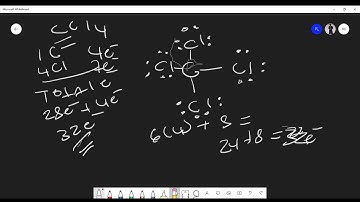 Microsoft Whiteboard
CCl4
1C 4e
4Cl 7e
TOTAL e
28e + 4e
32e
Cl
Cl C Cl
Cl
6(4) + 8 =
24 + 8 =